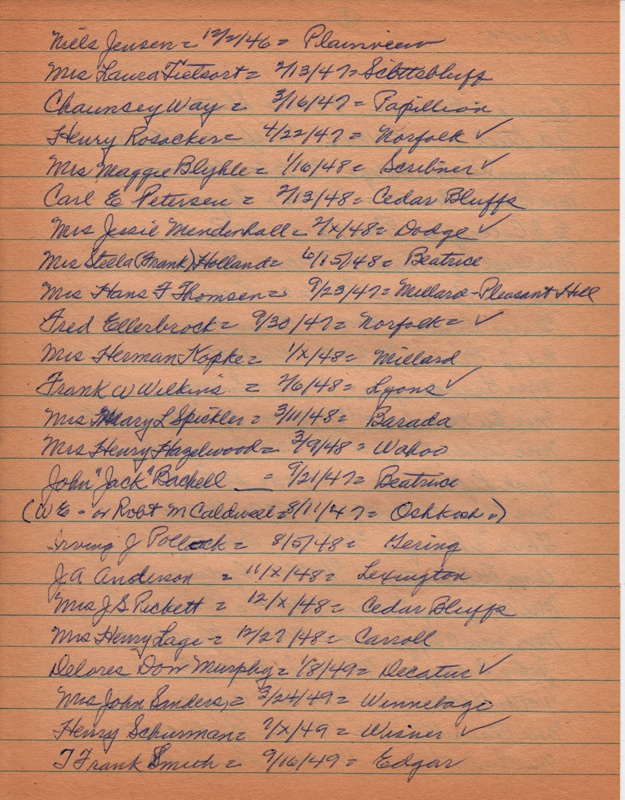 Niels Jensen = 12/2/46 = Plainview
Mrs Laura Tietsort = 2/13/47 = Scottsbluff
Chaunsey Way = 3/16/47 = Papillion
Henry Rosacker = 4/22/47 = Norfolk ✓
Mrs Maggie Blyhle = 1/16/48 = Scribner ✓
Carl E Petersen = 2/13/48 = Cedar Bluffs
Mrs Jessie Mendenhall = 2/x/48 = Dodge ✓
Mrs Stella (Frank) Holland = 6/15/48 = Beatrice
Mrs Hans F Thomsen = 9/23/47 = Millard - Pleasant Hill
Fred Ellerbrock = 9/30/47 = Norfolk = ✓
Mrs Herman Kopke = 1/x/48 = Millard
Frank W Wilkins = 2/6/48 = Lyons ✓
Mrs Mary L Spickler = 3/11/48 = Barada
Mrs Henry Hagelwood = 3/9/48 = Wahoo
John "Jack" Bachell = 9/21/47 = Beatrice
(W E - or Robt M Caldwell = 8/11/47 = Oshkosh =)
Irving J Pollock = 8/5/48 = Gering
J.A Anderson = 11/x/48 = Lexington
Mrs J S Pickett = 12/x/48 = Cedar Bluffs
Mrs Henry Lage = 12/27/48 = Carroll
Delores Dow Murphy = 1/8/49 = Decatur ✓
Mrs John Sinders, = 3/24/49 = Winnebago
Henry Schurman = 7/x/49 = Wisner ✓
T Frank Smith = 9/16/49 = Edgar